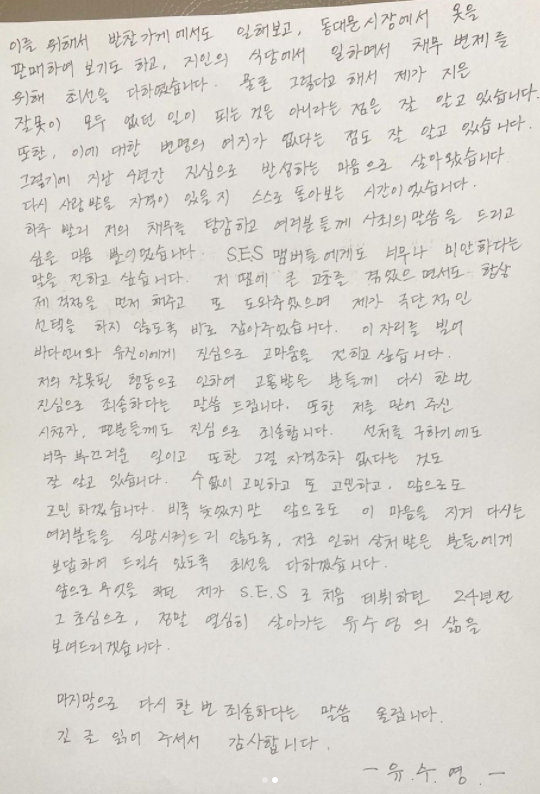 이를 위해서 반찬가게에서도 일해보고, 동대문시장에서 옷을
판매하여 보기도 하고, 지인의 식당에서 일하면서 채무 변제를
위해 최선을 다하였습니다. 물론 그렇다고 해서 제가 지은
잘못이 모두 없던 일이 되는 것은 아니라는 점은 잘 알고 있습니다.
또한, 이에 대한 변명의 여지가 없다는 점도 잘 알고 있습니다.
그렇기에 지난 4년간 진심으로 반성하는 마음으로 살아왔습니다.
다시 사랑받을 자격이 있을지 스스로 돌아보는 시간이었습니다.
하루 빨리 저의 채무를 탕감하고 여러분들께 사죄의 말씀을 드리고
싶을 마음 뿐이었습니다. S.E.S 맴버들에게도 너무나 미안하다는
말을 전하고 싶습니다. 저 땜에 큰 고초를 겪었으면서도 항상
제 걱정을 먼저 해주고 또 도와주었으며 제가 극단적인
선택을 하지 않도록 바로 잡아주었습니다. 이 자리를 빌어
바다언니와 유진이에게 진심으로 고마움을 전하고 싶습니다.
저의 잘못된 행동으로 인하여 고통받은 분들께 다시 한번
진심으로 죄송하다는 말씀 드립니다. 또한 저를 믿어 주신
시청자, 팬분들께도 진심으로 죄송합니다. 선처를 구하기에도
너무 부끄러운 일이고 또한 그럴 자격조차 없다는 것도
잘 알고 있습니다. 수없이 고민하고 또 고민하고, 앞으로도
고민 하겠습니다. 비록 늦었지만 앞으로도 이 마음을 지켜 다시는
여러분들을 실망시켜드리 않도록, 저로 인해 상처받은 분들에게
보답하여 드릴수 있도록 최선을 다하겠습니다.
앞으로 무엇을 하던 제가 S.E.S 로 처음 데뷔하던 24년전
그 초심으로, 정말 열심히 살아가는 유수영의 삶을
보여드리겠습니다.
마지막으로 다시 한 번 죄송하다는 말씀 올립니다.
긴 글 읽어 주셔서 감사합니다.
- 유. 수. 영. -